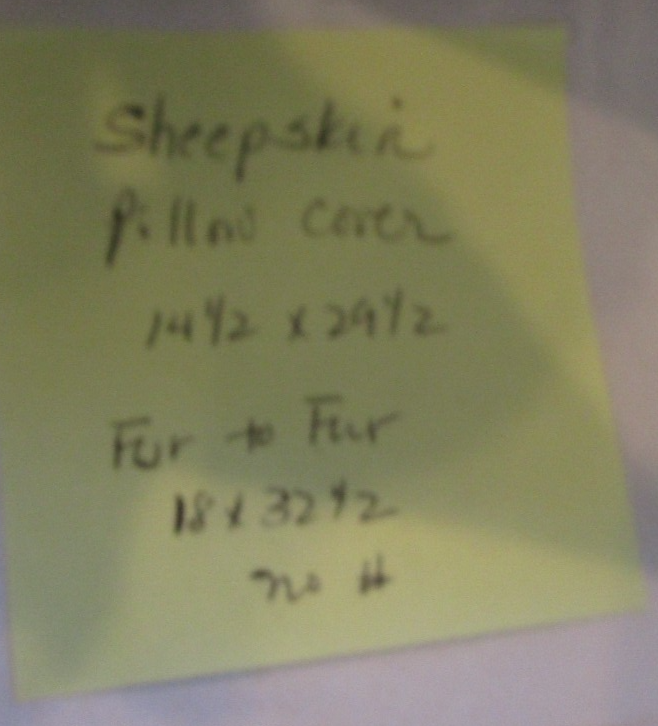 Sheepskin
Pillow Cover
14 1/2 x 29 1/2
Fur to Fur
18 x 32 1/2
no #